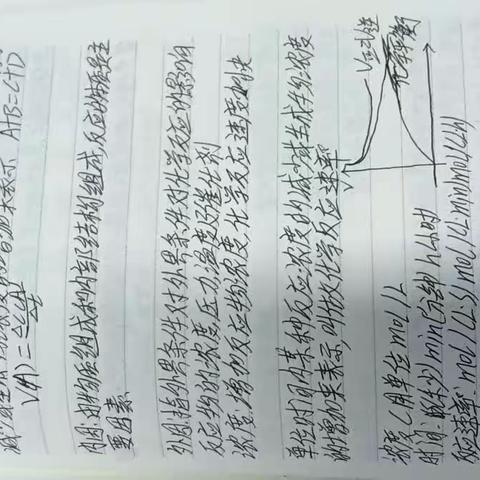 来表示 A+B=C+D
V(A)=△C(A)/△t
内因:由物质组成和内部结构组成,反应物质是主
要因素
外因:指外界条件对外界条件对化学反应的影响
反应物的浓度 压力 温度及催化剂
浓度:增加反应物浓度,化学反应速度加快
单位时间内某种反应浓度的减少或生成物浓度
的增加来表示,叫做化学反应速率
V
V正=V逆
化学平衡
浓度C用单位 mol/L
时间: min(分钟) h(小时)
反应速率: mol/(L·s) mol/(L·min) mol/(L·h)